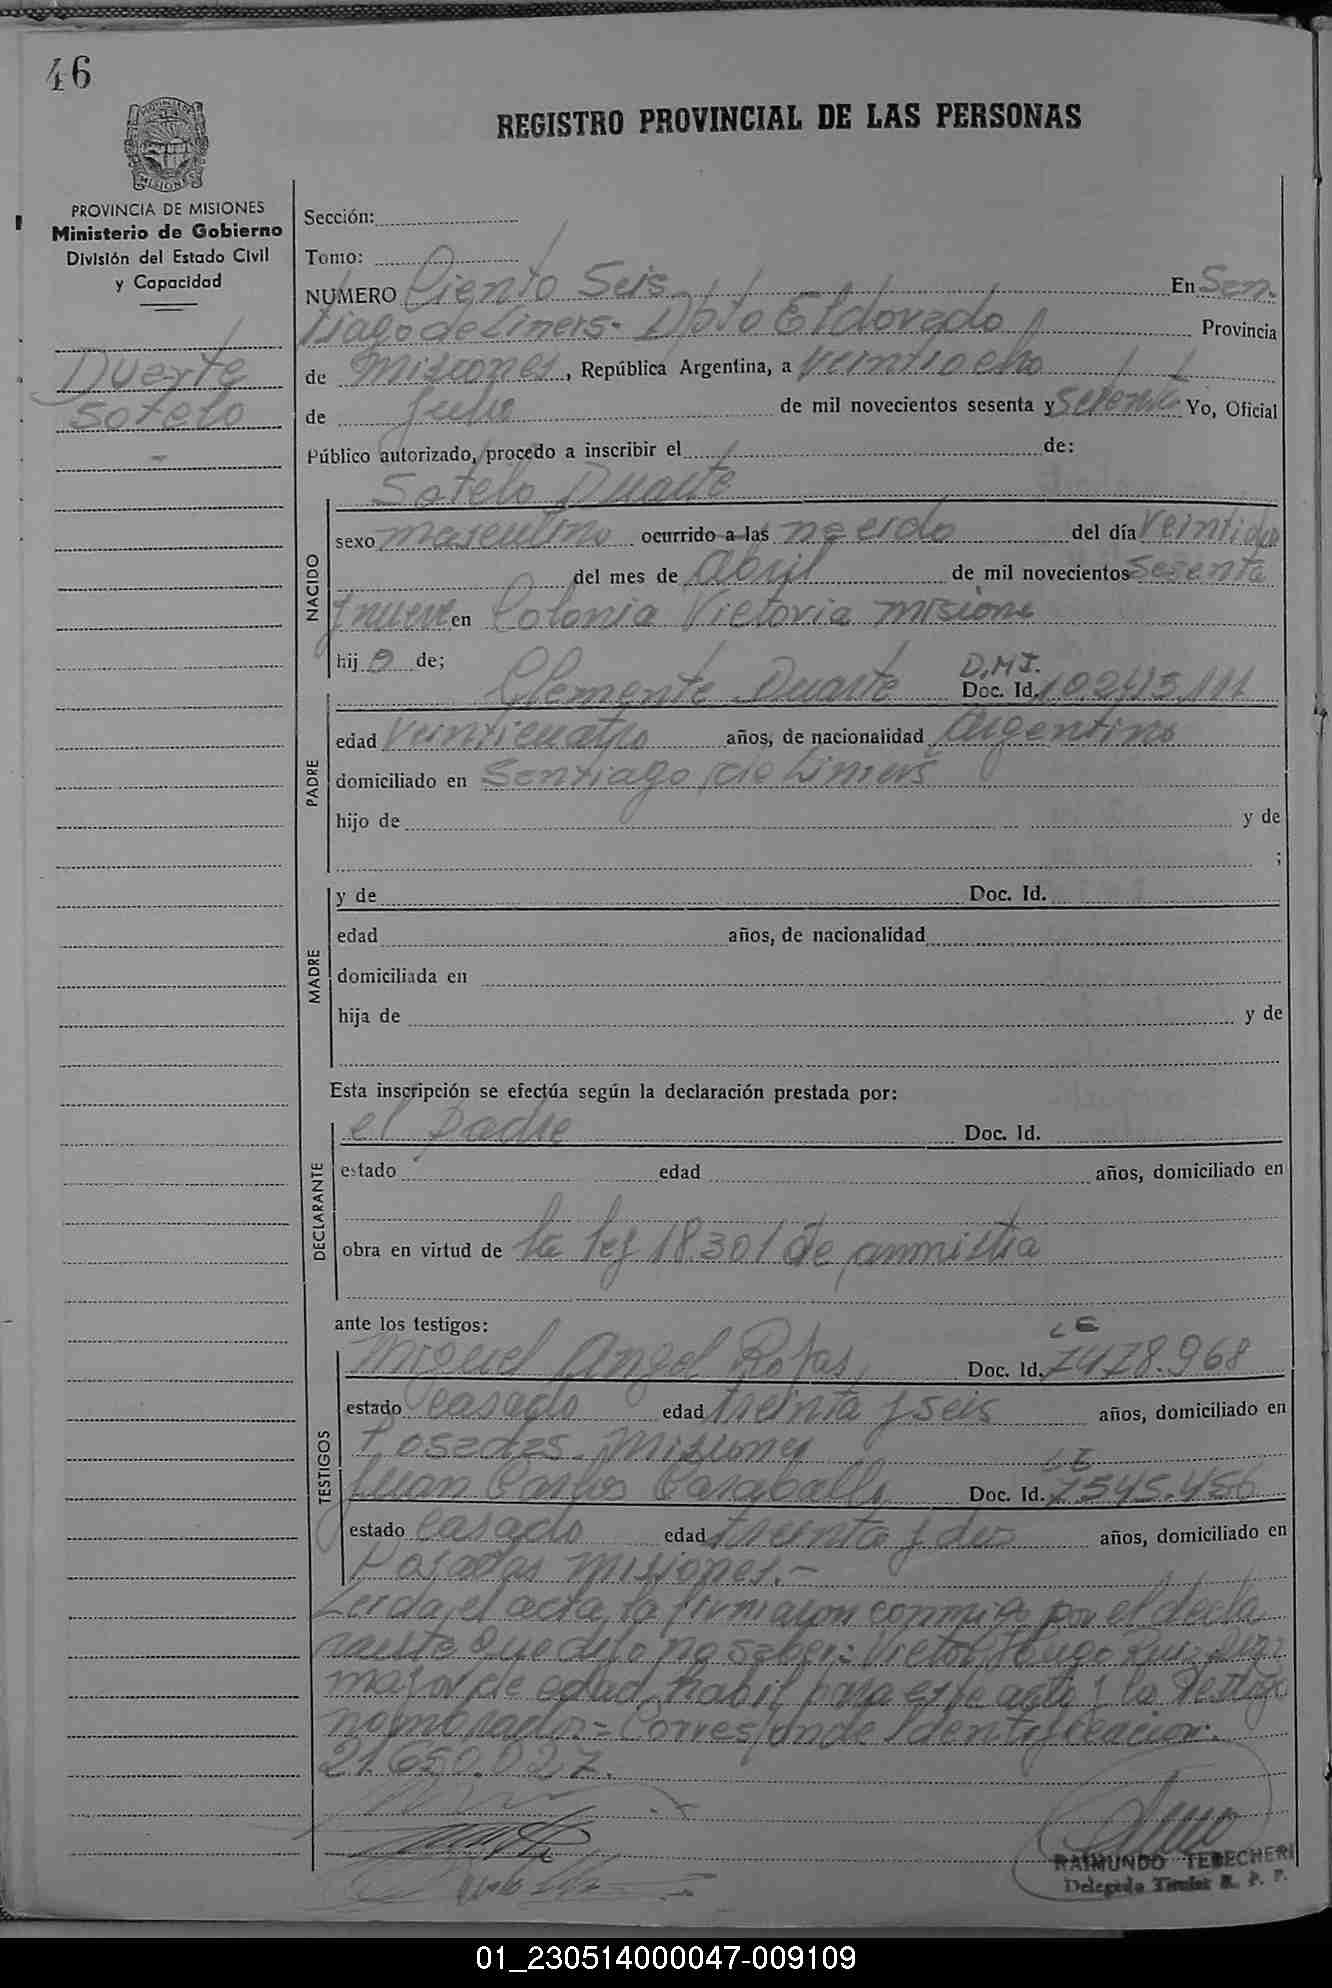 46
REGISTRO PROVINCIAL DE LAS PERSONAS
MISIONES
PROVINCIA DE MISIONES
Ministerio de Gobierno
División del Estado Civil
y Capacidad
Duerte
Sotelo
Sección:
Tomo:
NUMERO Ciento Seis En San-
tiago de Liniers- Dpto Eldorado Provincia
de Misiones, República Argentina, a veintiocho
de Julio de mil novecientos sesenta y setenta Yo, Oficial
Público autorizado, procedo a inscribir el de:
Sotelo Duarte
NACIDO
sexo masculino ocurrido a las no erdo del día veintidos
del mes de Abril de mil novecientos sesenta
y nueve en Colonia Victoria misione
hij o de;
D.M.I.
Clemente Duarte Doc. Id. 10.243.111
PADRE
edad veinticuatro años, de nacionalidad Argentino
domiciliado en Santiago de Liniers
hijo de y de
;
MADRE
y de Doc. Id.
edad años, de nacionalidad
domiciliada en
hija de y de
Esta inscripción se efectúa según la declaración prestada por:
DECLARANTE
el padre Doc. Id.
estado edad años, domiciliado en
obra en virtud de la ley 18.301 de anmistia
ante los testigos:
TESTIGOS
LE
Miguel Angel Rojas Doc. Id. 7478.968
estado casado edad treinta y seis años, domiciliado en
Posadas Misiones
LE
Juan Carlos Doc. Id. 7545.456
estado casado edad treinta y dos años, domiciliado en
Posadas misiones.-
Leida el acta, la firmaron conmigo por el decla
rante que dijo no saber: Victor Hugo Ruiz Diaz
mayor de edad, habil para este acto y lo testigo
nombrados = Corresponde Identificacion:
21.650.027.
RAIMUNDO TEBECHERI
Delegado Titular R. P. P.
01_230514000047-009109